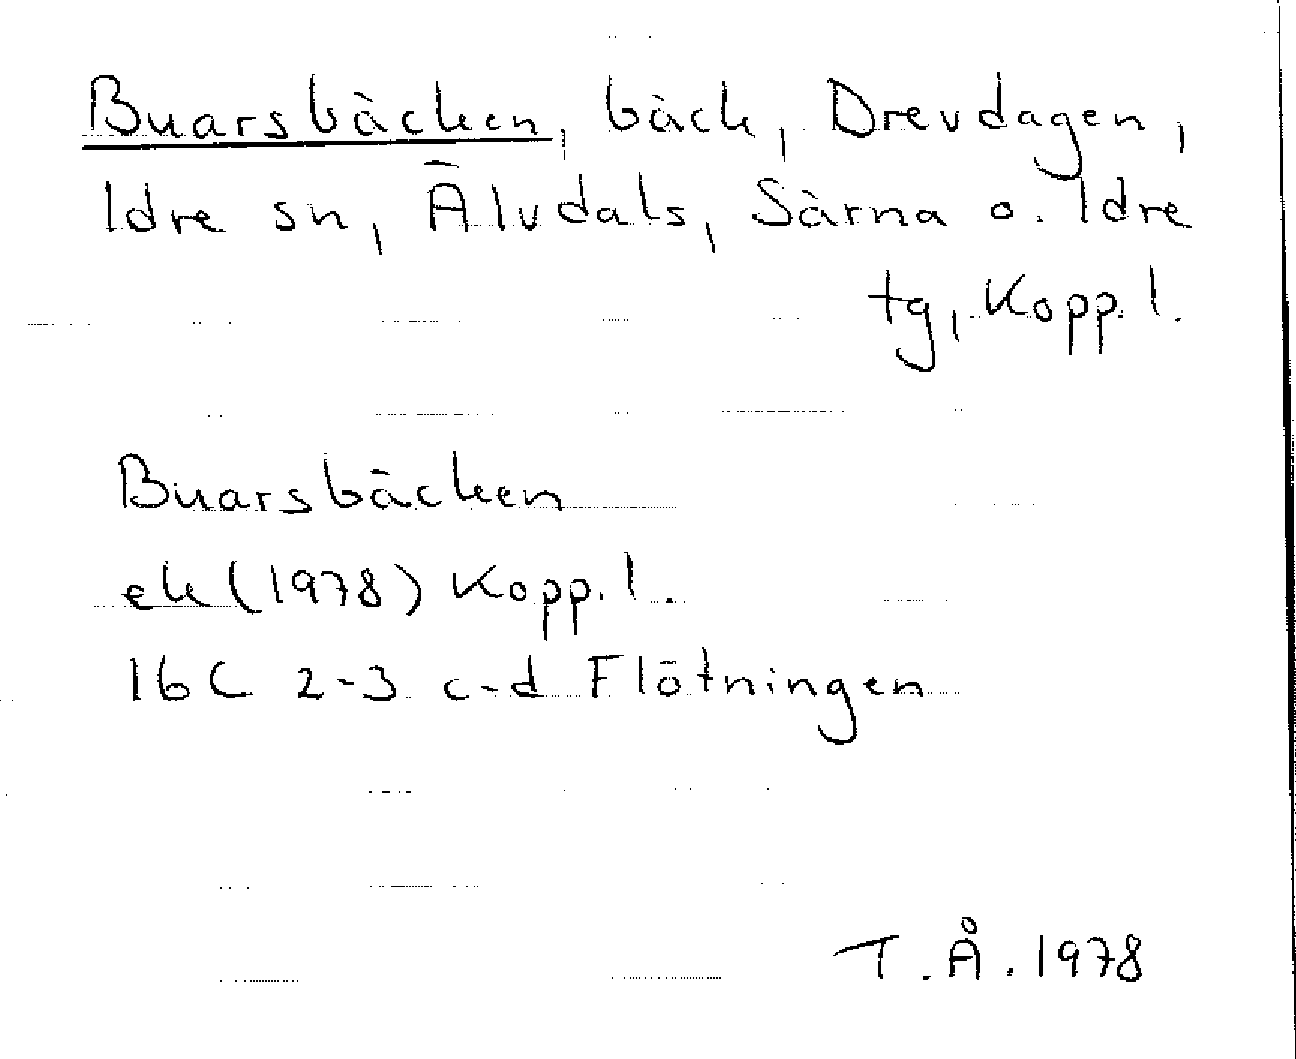 Buarsbäcken, bäck, Drevdagen,
Idre sn, Älvdals, Särna o. Idre
tg, Kopp. l.
Buarsbäcken
ek (1978) Kopp. l.
16C 2-3 c-d Flötningen
T. Å. 1978